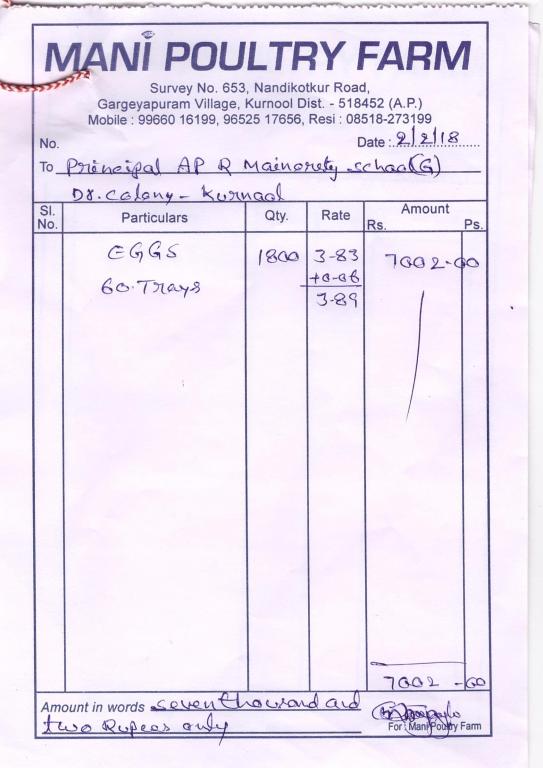 MANI POULTRY FARM
Survey No. 653, Nandikotkur Road,
Gargeyapuram Village, Kurnool Dist. - 518452 (A.P.)
Mobile : 99660 16199, 96525 17656, Resi : 08518-273199
No. Date : 2/2/18
To Principal AP R Mainorety school(G)
Dr. Colony - Kurnool
Sl. No. Particulars Qty. Rate Amount Rs. Ps.
EGGS 1800 3-83 7002-00
60.Trays +0-06
3-89
7002 -00
Amount in words seven thousand and
two Rupees only
For : Mani Poultry Farm